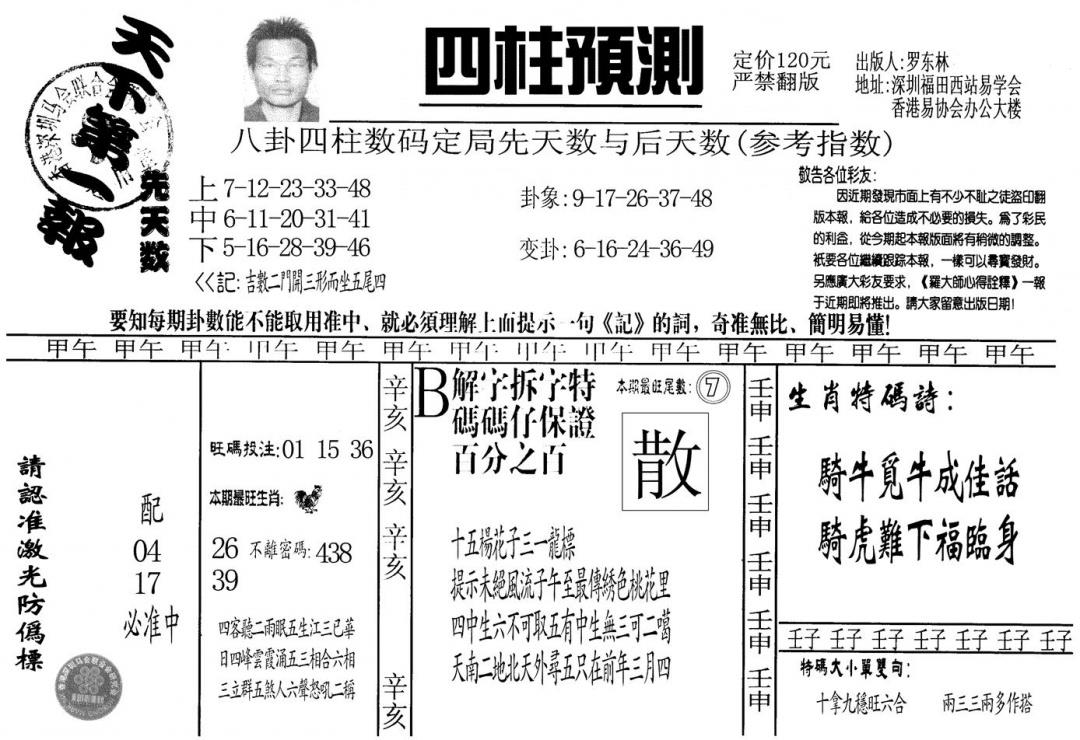 天下第一報
四柱預測
定价120元
严禁翻版
出版人:罗东林
地址:深圳福田西站易学会
香港易协会办公大楼
八卦四柱数码定局先天数与后天数(参考指数)
先天数
上7-12-23-33-48
中6-11-20-31-41
下5-16-28-39-46
<<記:吉數二門開三形而坐五尾四
卦象:9-17-26-37-48
变卦:6-16-24-36-49
敬告各位彩友:
因近期發現市面上有不少不恥之徒盜印翻
版本報,給各位造成不必要的損失。為了彩民
的利益,從今期起本報版面將有稍微的調整。
衹要各位繼續跟踪本報,一樣可以尋寶發財。
另應廣大彩友要求,《羅大師心得詮釋》一報
于近期即將推出。請大家留意出版日期!
要知每期卦數能不能取用准中、就必須理解上面提示一句《記》的詞,奇准無比、簡明易懂!
甲午 甲午 甲午 甲午 甲午 甲午 甲午 甲午 甲午 甲午 甲午 甲午 甲午 甲午 甲午
請認准激光防僞標
配
04
17
必准中
旺碼投注:01 15 36
本期最旺生肖:
26 不離密碼:438
39
四客聽二雨眠五生江三已華
日四峰雲霞涌五三相合六相
三立群五煞人六聲怒吼二稱
辛亥
辛亥
辛亥
辛亥
B
解字拆字特
碼碼仔保證
百分之百
本期最旺尾數:7
散
十五楊花子三一龍標
提示未絕風流子午至最傳綉色桃花里
四中生六不可取五有中生無三可二噶
天南二地北天外尋五只在前年三月四
壬申
壬申
壬申
壬申
壬申
壬申
生肖特碼詩:
騎牛覓牛成佳話
騎虎難下福臨身
壬子 壬子 壬子 壬子 壬子 壬子 壬子
特碼大小單雙句:
十拿九穩旺六合 兩三三兩多作搭